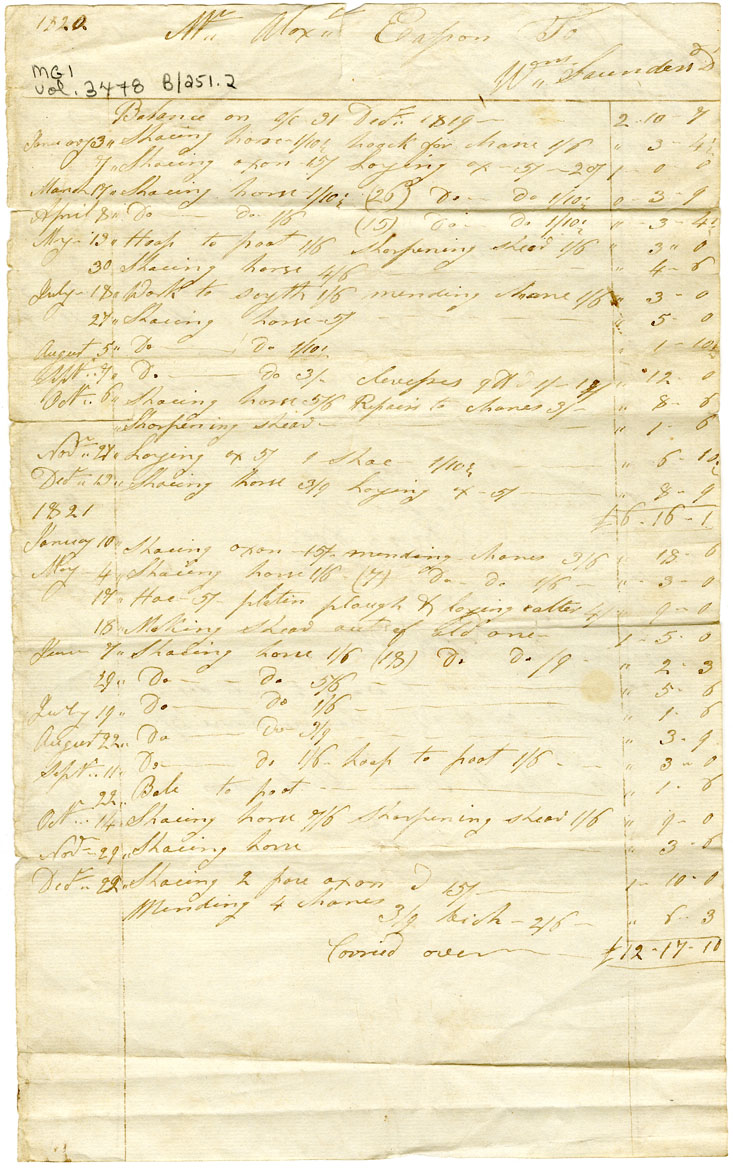 1820 Mr Alexr Eason To
MG1
Vol. 3478 B/251.2
Wm Saunders Dr
Balance on a/c 31 Decr 1819 — 2 - 10 - 9
January 3 " Shoeing horse 1/10½ hogek for chane 1/6 " 3 - 4½
7 " Shoeing oxon 15/ Loying ox — 5/ — 20/ 1 - 0 - 0
March 17 " Shoeing horse 1/10½ (26) Do — do 1/10½ 0 - 3 - 9
April 8 " Do — do 1/6 (15) Do — Do 1/10½ " - 3 - 4½
May - 13 " Hoop to poot 1/6 Sharpening shear 1/6 " 3 " 0
30 Shoeing horse 4/6 — " 4 - 6
July - 18 " Work to scyth 1/6 mending chane 1/6 " 3 - 0
27 " Shoeing horse - 5/ — " 5 - 0
August 5 " Do — Do 1/10½ " 1 - 10½
Sept. 7 " Do — do 3/- clevesses 1/- " 12 - 0
Octr. 6 " Shoeing horse 5/6 Repairs to chanes 3/- " 8 - 6
" Sharpening shear — " 1 - 6
Novr 27 " Loying ox 5/ 1 Shoe — 1/10½ " 6 - 10½
Decr " 12 " Shoeing horse 3/9 Loying ox - 5/ — " 8 - 9
1821 £6 - 16 - 1
January 10 " Shoeing oxon - 15/ - mending chanes 3/6 " 18 - 6
May - 4 " Shoeing horse 1/6 - (7) Do - do 1/6 - " - 3 - 0
17 " Hoe - 5/ - platin plough & loying colter 4/- " 9 - 0
18 " Making shear out of old one — 1 - 5 - 0
June - 7 " Shoeing horse 1/6 (18) Do Do /9 - " 2 - 3
29 " Do — Do 5/6 — " 5 - 6
July 19 " Do — Do 1/6 — " 1 - 6
August 22 " Do — Do 3/9 — " 3 - 9
Septr. 11 " Do — do 1/6 - hoop to poot 1/6 - " 3 - 0
22 " Bale to poot — " 1 - 6
Octr. 14 " Shoeing horse 7/6 sharpening shear 1/6 " 9 - 0
Novr - 29 " Shoeing horse — " 3 - 6
Decr " 22 " Shoeing 2 pore oxon 15/ — 1 - 10 - 0
Mending 4 chanes 3/9 - 2/6 - " 6 - 3
Carried over — £12 - 17 - 10